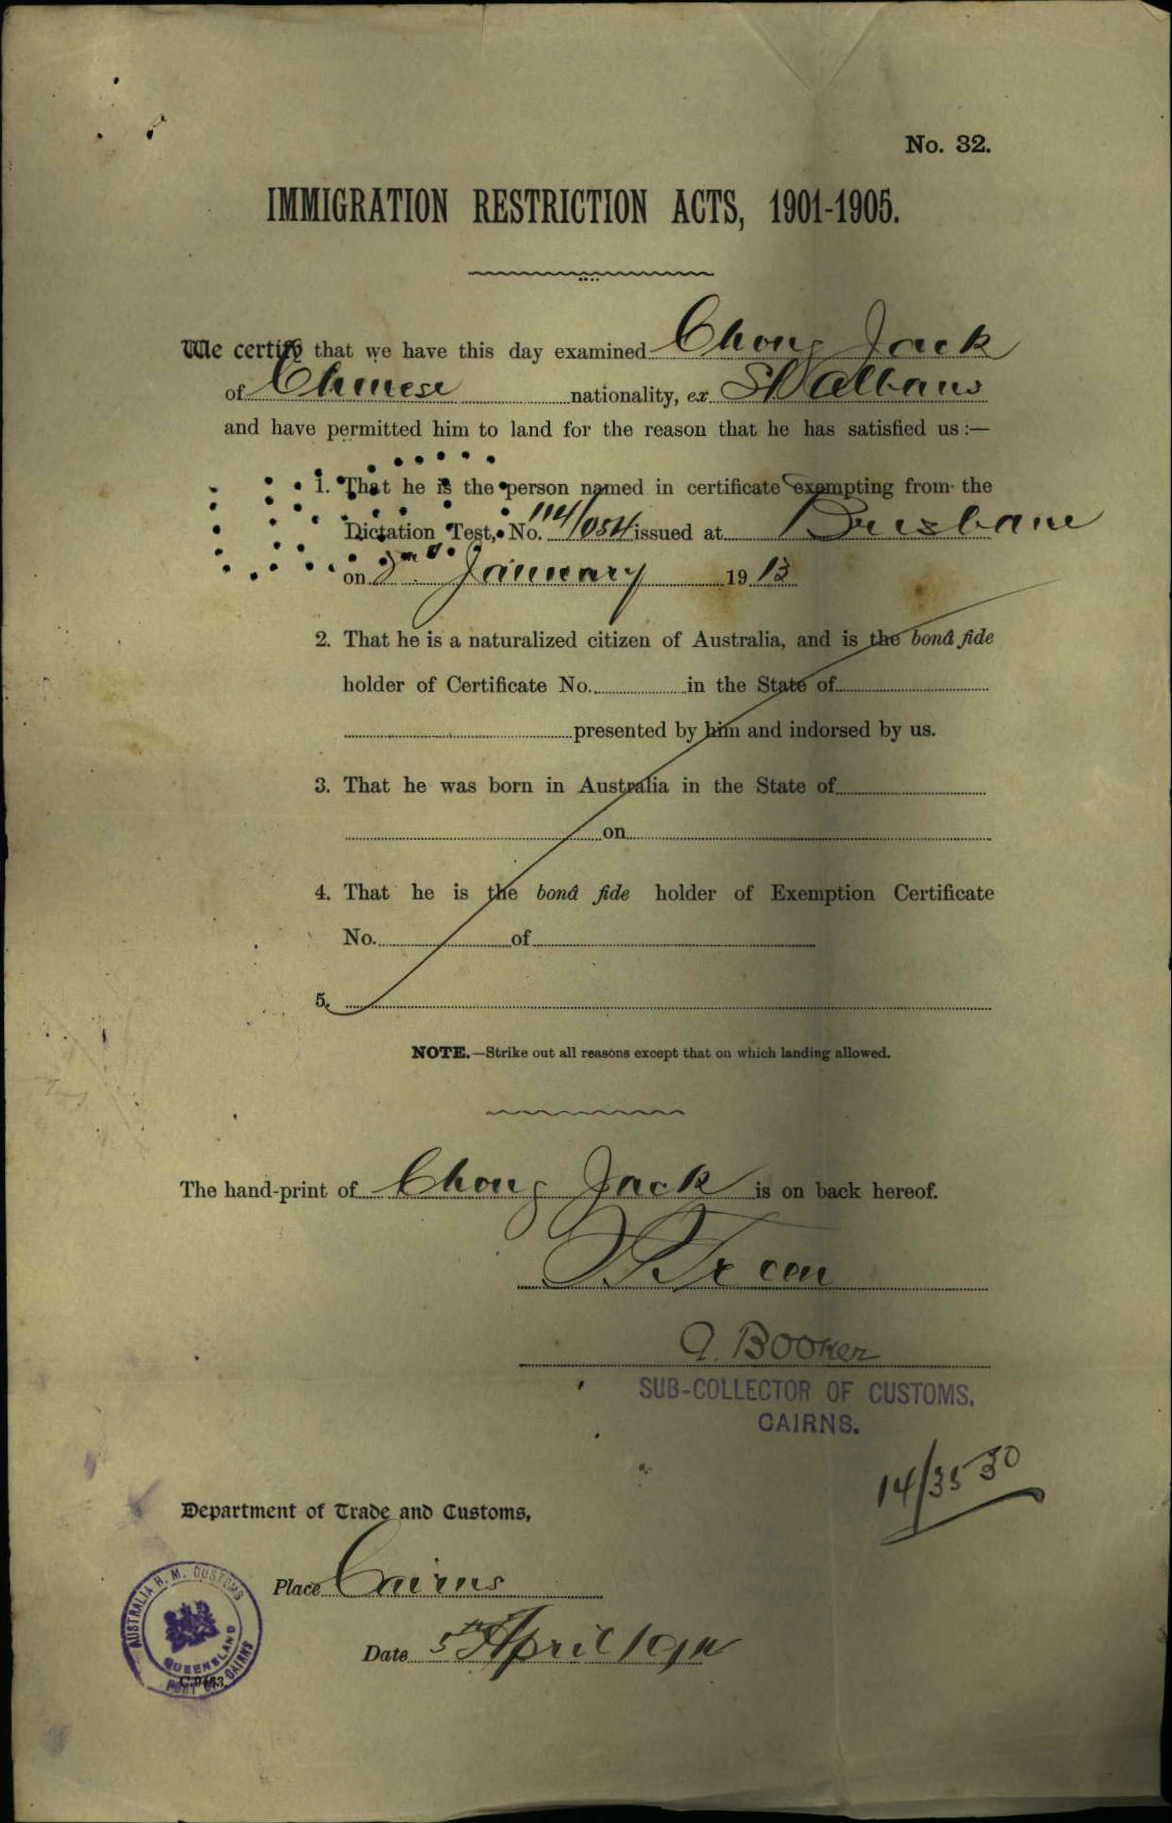 No. 32.
IMMIGRATION RESTRICTION ACTS, 1901-1905.
We certify that we have this day examined Chong Jack
of Chinese nationality, ex St Albans
and have permitted him to land for the reason that he has satisfied us :—
1. That he is the person named in certificate exempting from the
Dictation Test, No. 114/054 issued at Brisbane
on January 1913
2. That he is a naturalized citizen of Australia, and is the bonâ fide
holder of Certificate No. in the State of
presented by him and indorsed by us.
3. That he was born in Australia in the State of
on
4. That he is the bonâ fide holder of Exemption Certificate
No. of
5.
NOTE.—Strike out all reasons except that on which landing allowed.
The hand-print of Chong Jack is on back hereof.
A. Booker
SUB-COLLECTOR OF CUSTOMS,
CAIRNS.
14/3530
Department of Trade and Customs,
Place Cairns
Date 5th April 1914
AUSTRALIA H. M. CUSTOMS
QUEENSLAND
PORT OF CAIRNS